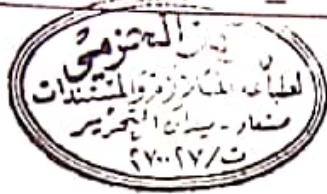 الحزمي
لطباعة المـ والمستندات
صنعاء - ميدان التحرير
ت/٢٧٠٠٢٧